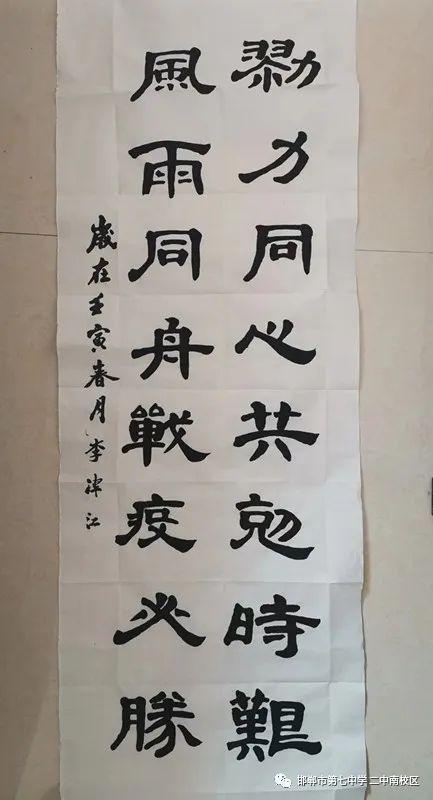 勠力同心共克時艱
風雨同舟戰疫必勝
歲在壬寅春月李津江
邯郸市第七中学二中南校区